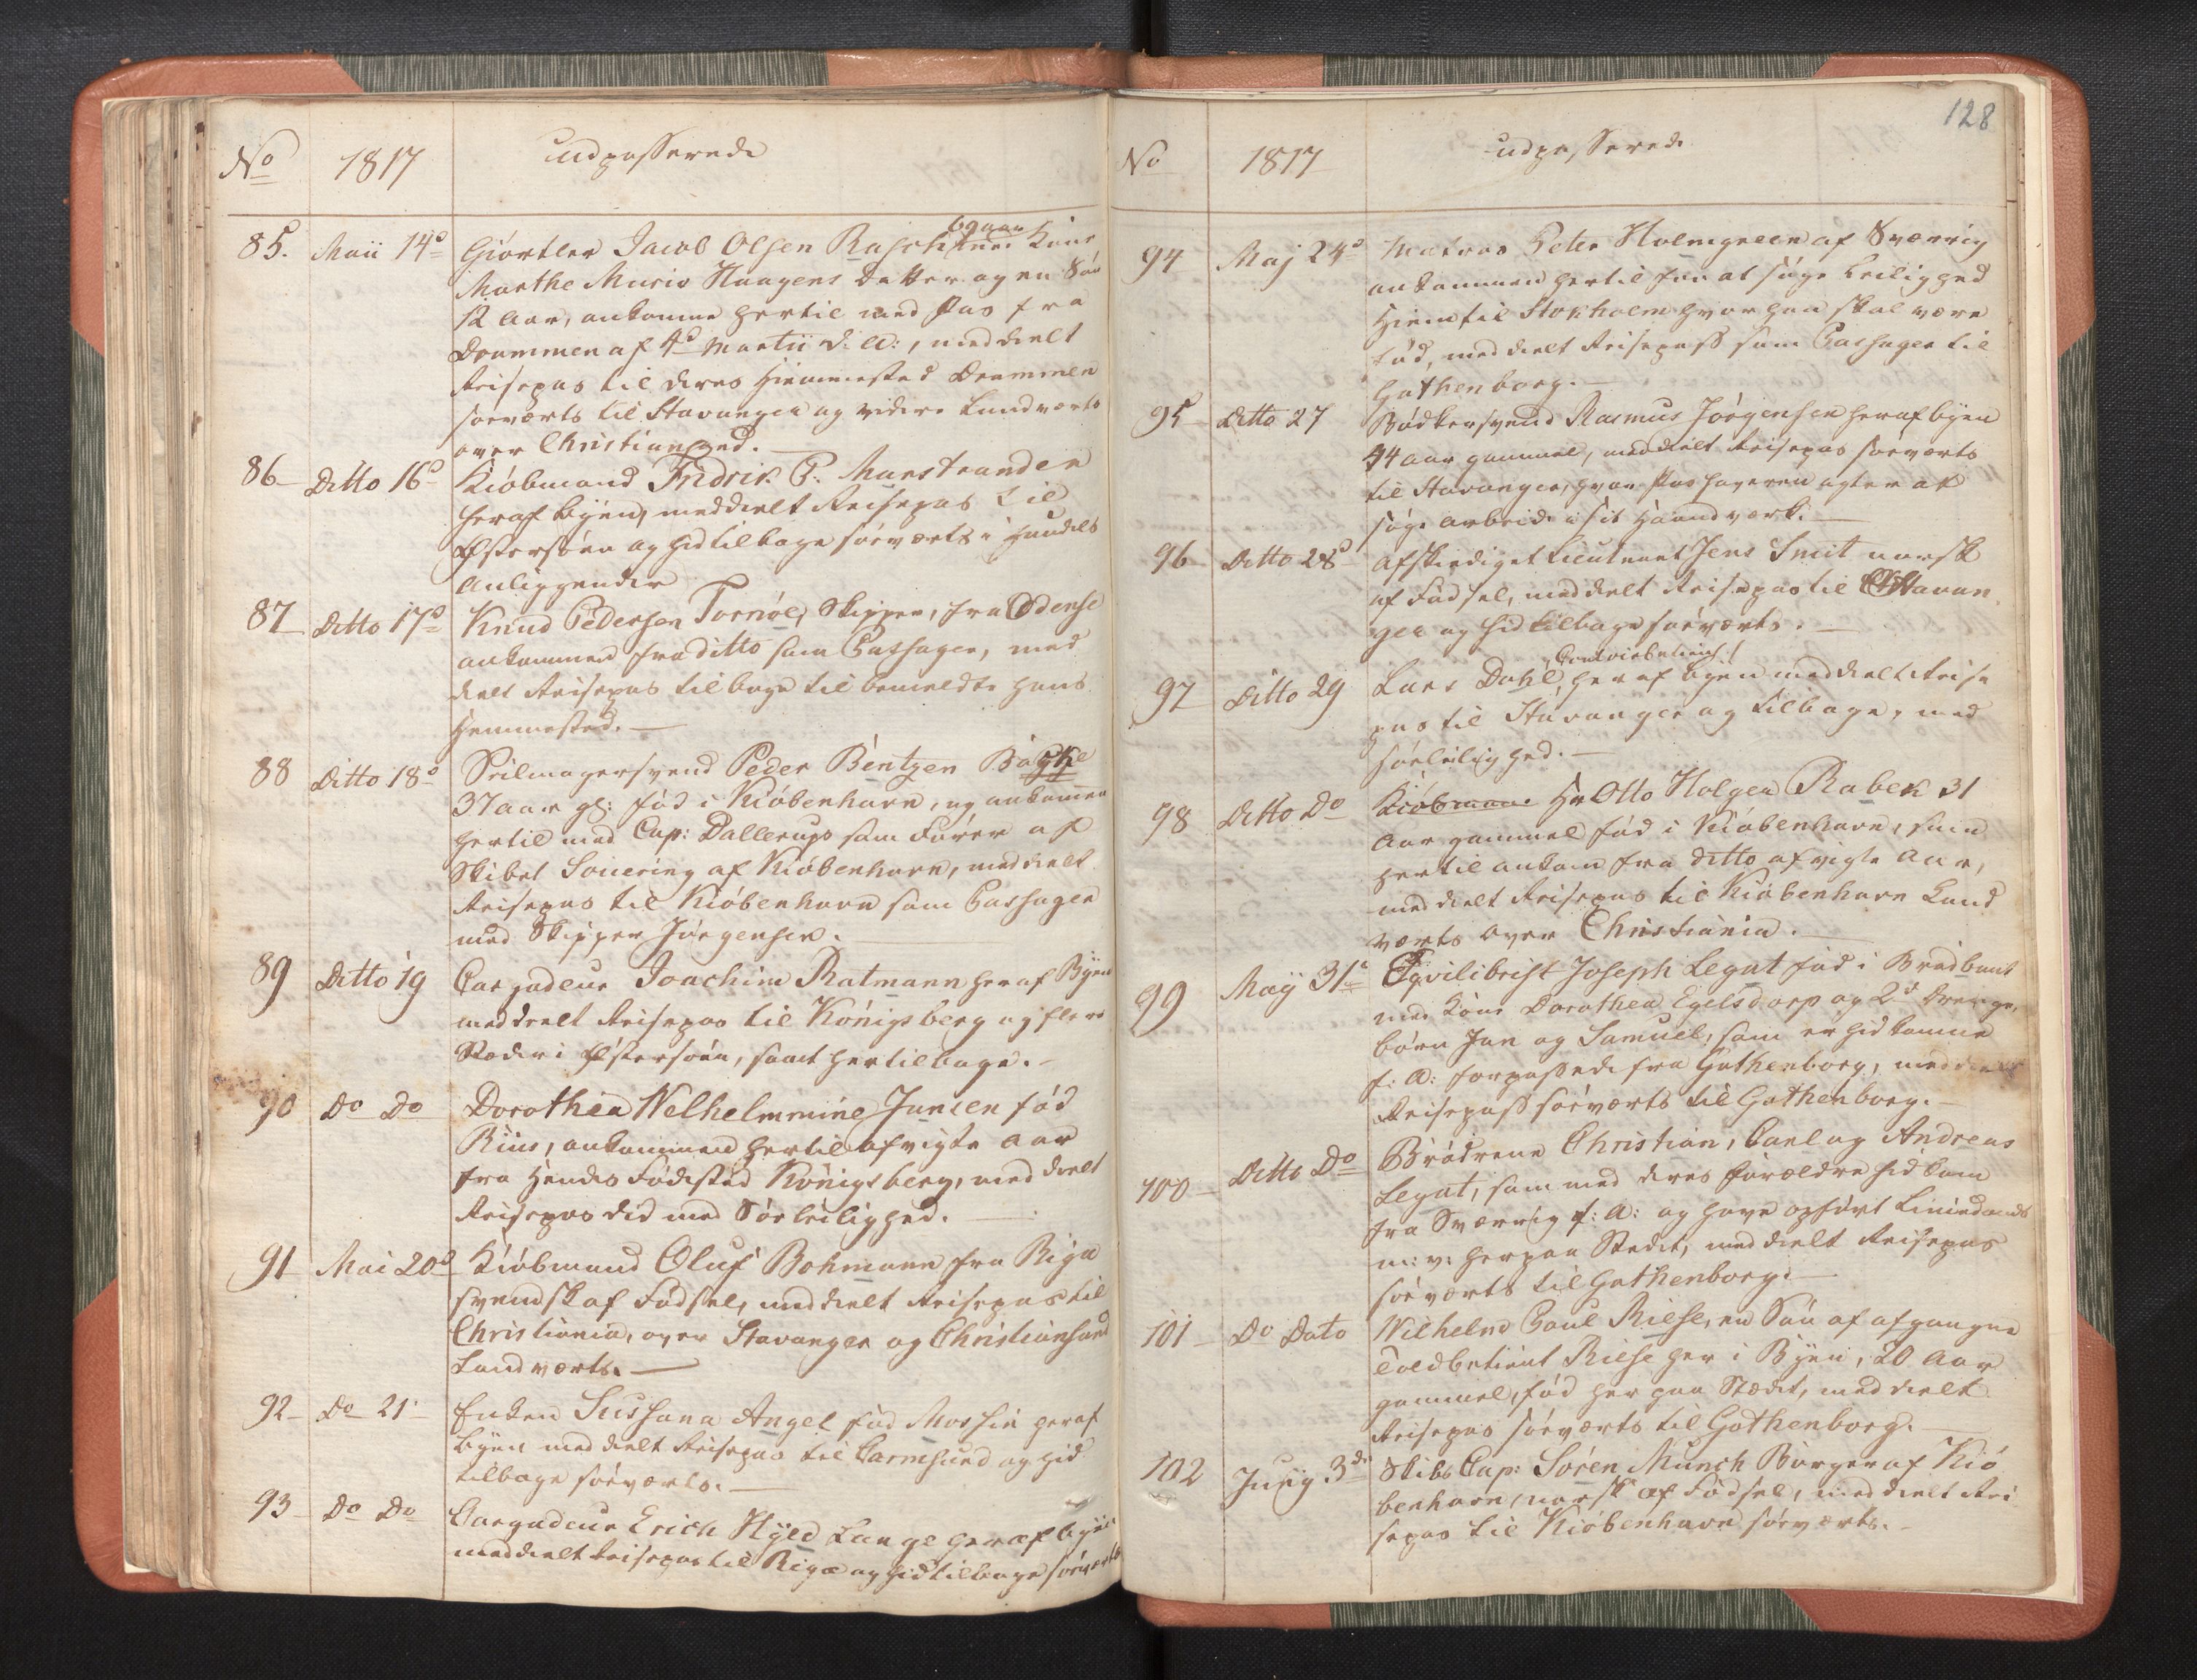 No 1817 udpasserede
85. Maii 14de Giørtler Jacob Olsen Rasch 69 aar med Kone
Marthe Maria Haagens Datter og en Søn
12 Aar, ankomne hertil med Pas fra
Drammen af 4de Martii d: A:, meddeelt
Reisepas til deres Hiemmested Drammen
søeværts til Stavanger og videre Landværts
over Christiansand.
86 Ditto 16de Kiøbmand Fredrik P. Marstrander
heraf Byen, meddeelt Reisepas til
Østersøen og hid tilbage søeværts i Handels
Anliggender
87 Ditto 17de Knud Pedersen Tornøe, Skipper, fra Odense
ankommen fra ditto som Passager, med
deelt Reisepas tilbage til bemeldte hans
Hemmested.
88 Ditto 18de Seilmagersvend Peder Bentzen
37 aar gl: fød i Kiøbenhavn, og ankommen
hertil med Cap: Dallerups som Fører af
Skibet Souering af Kiøbenhavn, meddeelt
Reisepas til Kiøbenhavn som Passager
med Skipper Jørgensen.
89 Ditto 19 Cargadeur Joachim Ratmann her af Byen
meddeelt Reisepas til Königsberg og flere
Stæder i Østersøen, samt hertilbage.
90 Do Do Dorothea Welhelmmine Jansen fød
Riis, ankommen hertil afvigte Aar
fra Hendes Fødested Königsberg, med deelt
Reisepas did med Søe leilighed.
91 Mai 20de Kiøbmand Oluf Bohmann fra Riga
svensk af Fødsel, meddeelt Reisepas til
Christiania, over Stavanger og Christiansand
Landværts.
92 Do 21 Enken Sussana Angel fød Mossin heraf
Byen meddeelt Reisepas til Carmsund og hid
tilbage søeværts.
93 Do Do Cargadeur Erich Hyld Lange heraf byen
meddeelt Reisepas til Riga og hid tilbage søeværts
128
No 1817 udpasserede
94 Maj 24de Matros Peter Holmgreen af Sverrig
ankommen hertil for at søge Leilighed
Hiem til Stokholm hvor han skal være
fød, meddeelt Reisepass som Passager til
Gothenborg.
95 Ditto 27 Bødkersvend Rasmus Jørgensen heraf byen
44 aar gammel, meddeelt Reisepas søeværts
til Stavanger, hvor Pashaveren agter at
søge Arbeide i sit Haandværk.
96 Ditto 28de Afskediget Lieutenant Jens Smit norsk
af Fødsel, meddeelt Reisepas til Stavan
ger og hid tilbage søeværts.
97 Ditto 29 Lars Dahl, heraf byen meddeelt Reise
pas til Stavanger og tilbage, med
søeleilighed.
98 Ditto Do Kiøbmand Hr Otto Holger Rabek 31
Aar gammel fød i Kiøbenhavn, som
hertil ankom fra ditto afvigte Aar,
meddeelt Reisepas til Kiøbenhavn Land
værts over Christiania.
99 Maij 31te Eqvilibrist Joseph Legat fød i Bradbant
med Kone Dorothea Egelsdorp og 2de Drenge,
børn Jan og Samuel, som er hid komne
f: A: forpassede fra Gothenborg, meddeelt
Reisepass søeværts til Gothenborg.
100 Ditto Do Brødrene Christian, Carl og Andreas
Legat, som med deres Forældre hid kom
fra Sverrig f: A: og have opført Liniedands
m: v: her paa Stedet, meddeelt Reisepas
søeværts til Gothenborg.
101 Do Dato Wilhelm Paul Riese, en Søn af afgangne
Toldbetient Riese her i Byen, 20 Aar
gammel, fød her paa Stædet, meddeelt
Reisepas søeværts til Gothenborg.
102 Junij 3die Skibs Cap: Søren Munch Borger af Kiø
benhavn, norsk af Fødsel, meddeelt Rei
sepas til Kiøbenhavn søeværts.